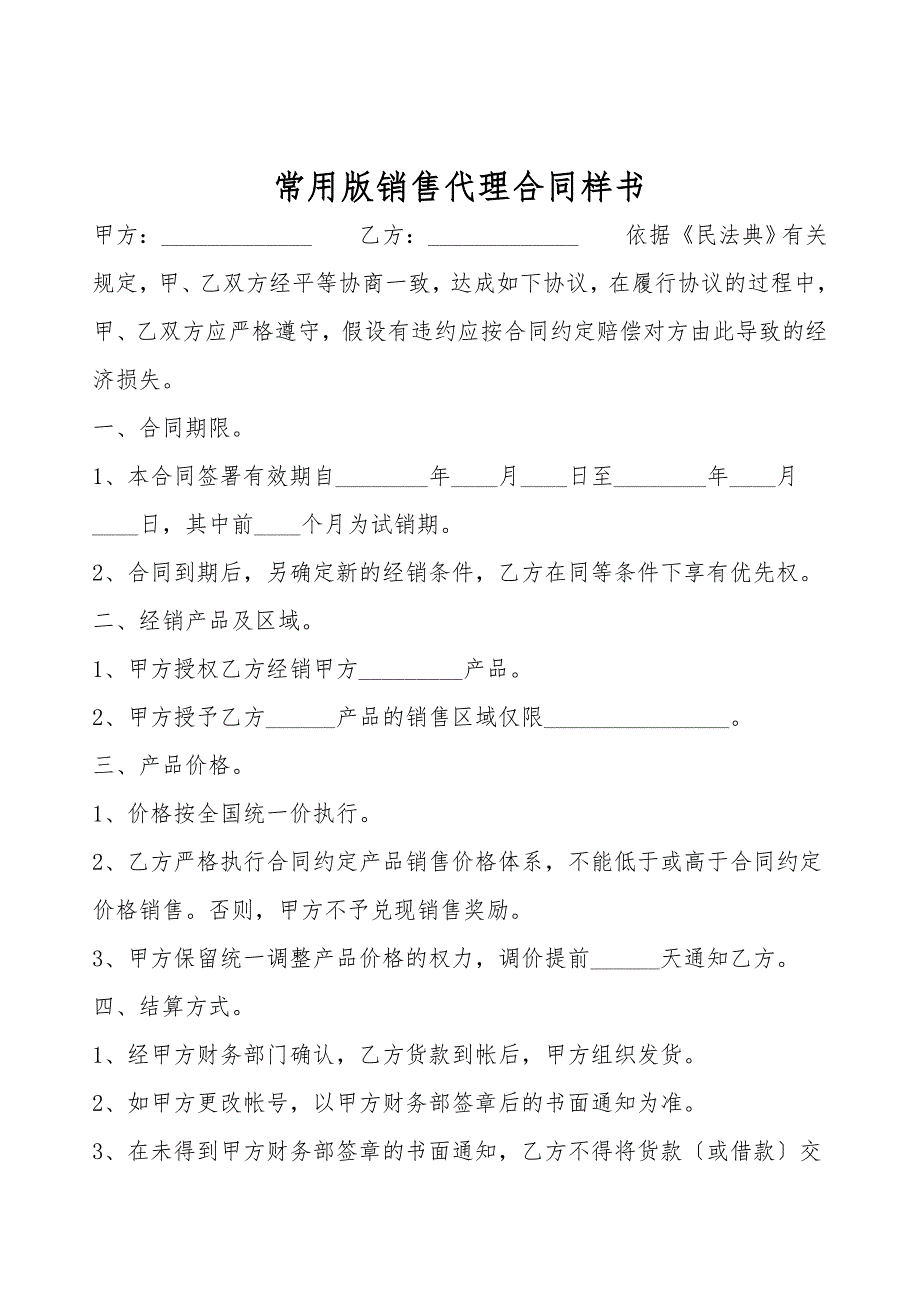 常用版销售代理合同样书
甲方：_____________　　乙方：_____________　　依据《民法典》有关
规定，甲、乙双方经平等协商一致，达成如下协议，在履行协议的过程中，
甲、乙双方应严格遵守，假设有违约应按合同约定赔偿对方由此导致的经
济损失。
一、合同期限。
1、本合同签署有效期自________年____月____日至________年____月
____日，其中前____个月为试销期。
2、合同到期后，另确定新的经销条件，乙方在同等条件下享有优先权。
二、经销产品及区域。
1、甲方授权乙方经销甲方_________产品。
2、甲方授予乙方______产品的销售区域仅限________________。
三、产品价格。
1、价格按全国统一价执行。
2、乙方严格执行合同约定产品销售价格体系，不能低于或高于合同约定
价格销售。否则，甲方不予兑现销售奖励。
3、甲方保留统一调整产品价格的权力，调价提前______天通知乙方。
四、结算方式。
1、经甲方财务部门确认，乙方货款到帐后，甲方组织发货。
2、如甲方更改帐号，以甲方财务部签章后的书面通知为准。
3、在未得到甲方财务部签章的书面通知，乙方不得将货款〔或借款〕交